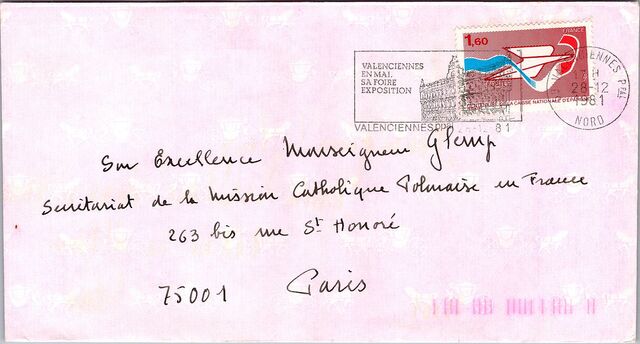 1,60
FRANCE
VALENCIENNES
EN MAI,
SA FOIRE
EXPOSITION
VALENCIENNES PPAL
28-12
1981
NORD
Son Excellence Monseigneur Glemp
Secrétariat de la Mission Catholique Polonaise en France
263 bis rue St Honoré
75001 Paris